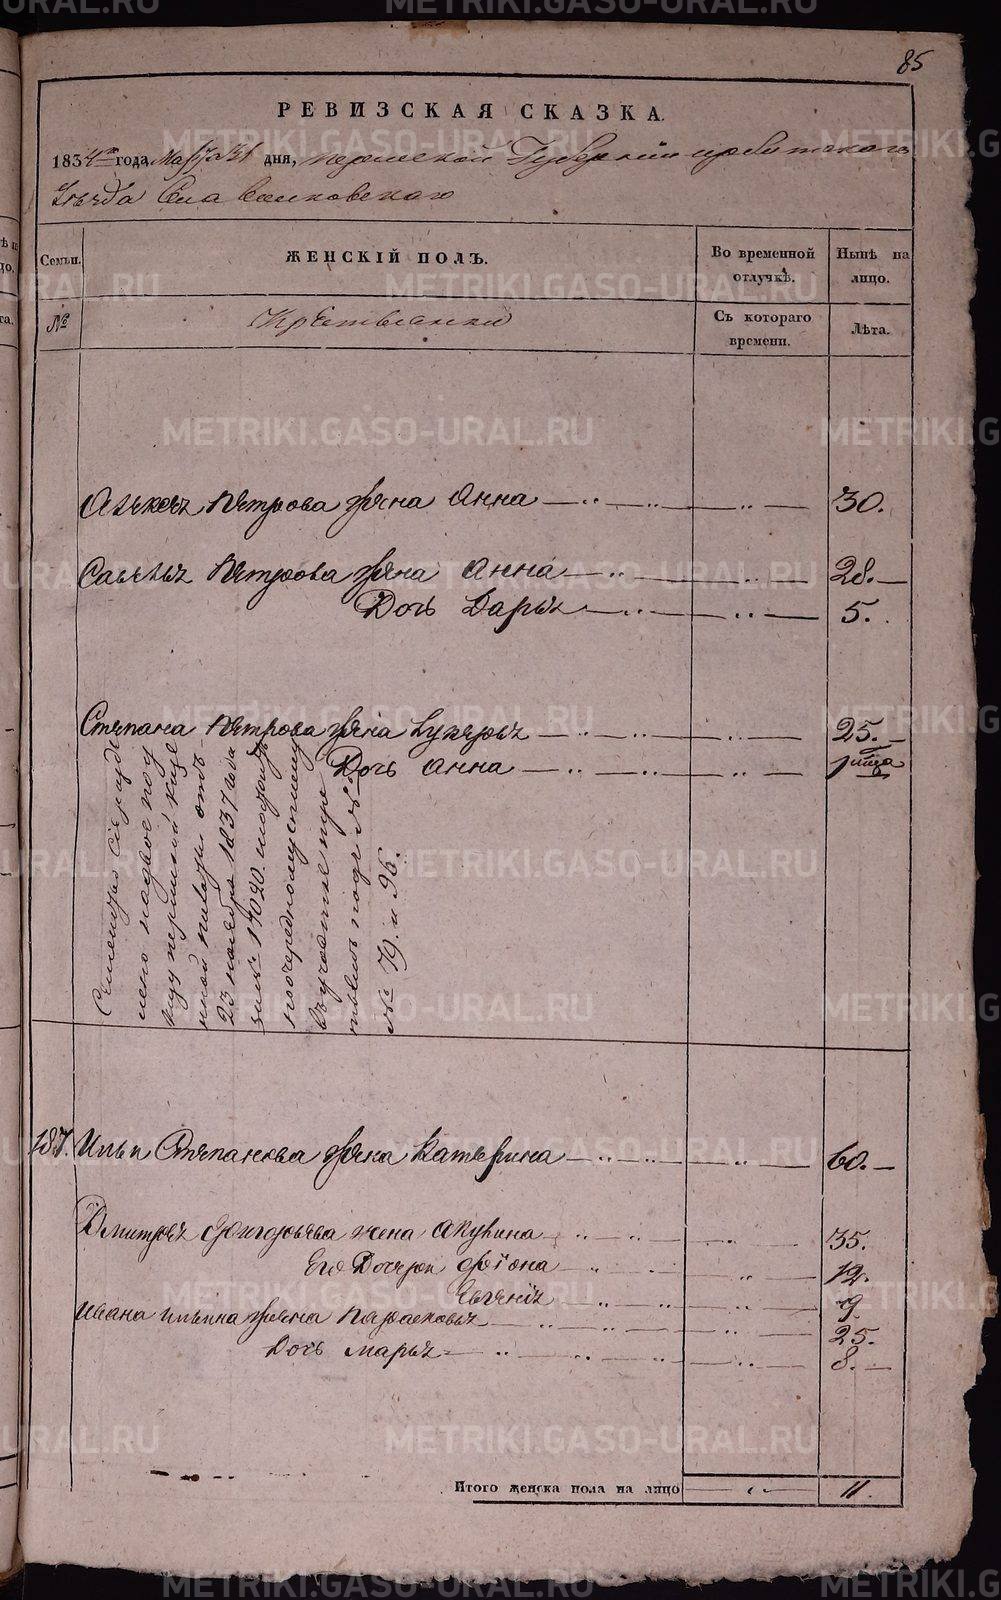 85
РЕВИЗСКАЯ СКАЗКА.
1834го года Марта 31 дня, пермской Губернии ирбитскаго
Уѣзда Села
Семьи.
ЖЕНСКІЙ ПОЛЪ.
Во временной отлучкѣ.
Нынѣ на лицо.
№
Крѣстьянки
Съ котораго времени.
Лѣта.
Петрова жена Анна 30.
Петрова жена Анна 28.
Дочь Дарья 5.
Степана Петрова жена 25.
Дочь Анна
надвое по
Пермской казе
нной палаты отъ
23 ноября 1837 года
за № 14020.
по очередному
№ 79. и 96.
187. Ильи Степанова жена Катерина 60.
Дмитрея Григорьева жена Акулина 35.
Его Дочери 12.
9.
Ивана Ильина жена Парасковья 25.
Дочь Марья 8.
Итого женска пола на лицо 11.
METRIKI.GASO-URAL.RU